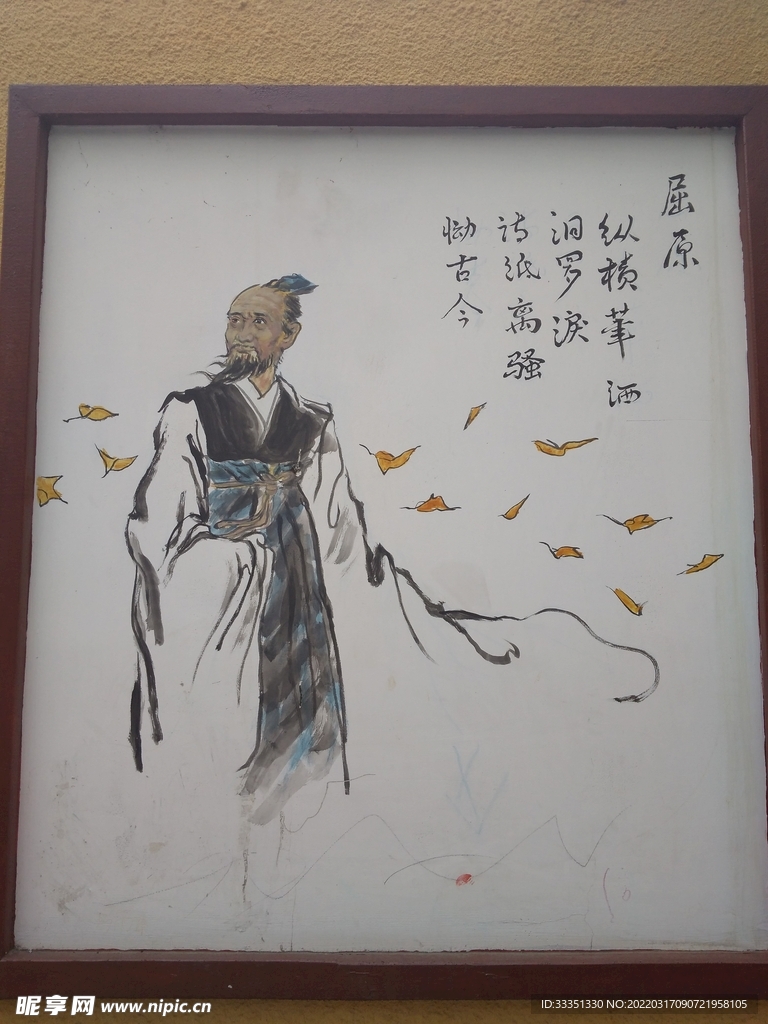 屈原
纵横笔洒
汨罗淚
诗纸离骚
恸古今
昵享网 www.nipic.cn
ID:33351330 NO:20220317090721958105